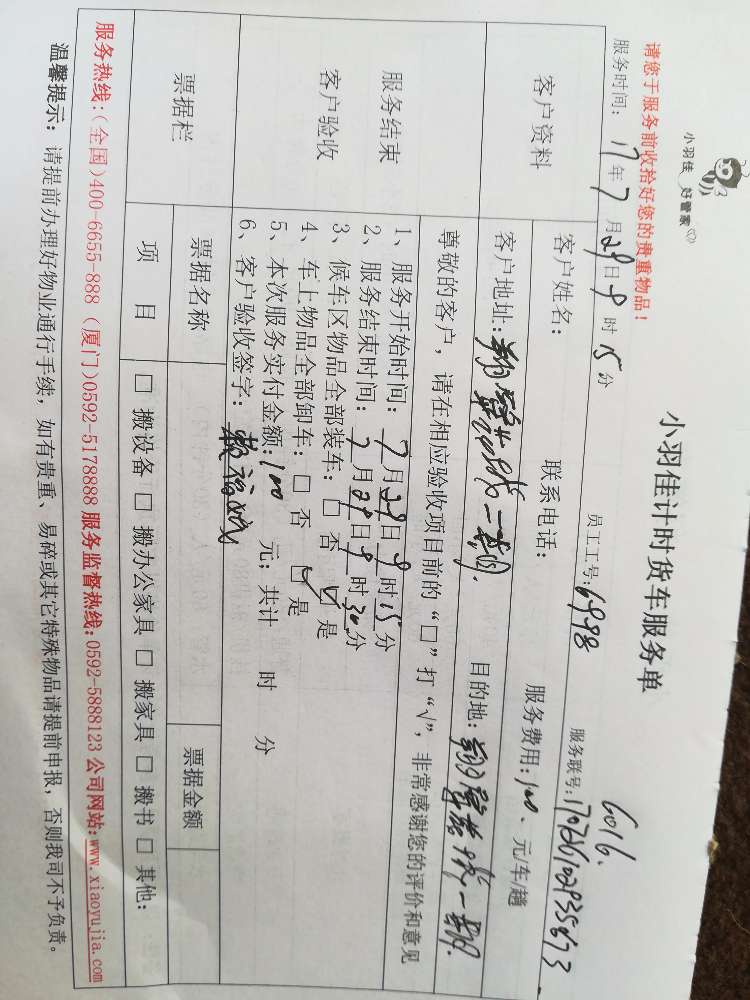 小羽佳 好管家
小羽佳计时货车服务单
6016.
请您于服务前收拾好您的贵重物品！
服务时间：17年7月29日9时15分 员工工号：6998 服务联号：
客户资料
客户姓名： 联系电话： 服务费用：100、元/车/趟
客户地址： 目的地：
尊敬的客户，请在相应验收项目前的“□”打“√”，非常感谢您的评价和意见
服务结束
客户验收
1、服务开始时间：7月29日9时15分
2、服务结束时间：7月29日9时30分
3、候车区物品全部装车：□ 否 ☑ 是
4、车上物品全部卸车：□ 否 ☑ 是
5、本次服务实付金额：100 元；共计 时 分
6、客户验收签字：
票据栏
票据名称 票据金额
项 目 □ 搬设备 □ 搬办公家具 □ 搬家具 □ 搬书 □ 其他：
服务热线：(全国)400-6655-888 (厦门)0592-5178888 服务监督热线：0592-5888123 公司网站：www.xiaoyujia.com
温馨提示：请提前办理好物业通行手续，如有贵重、易碎或其它特殊物品请提前申报，否则我司不予负责。